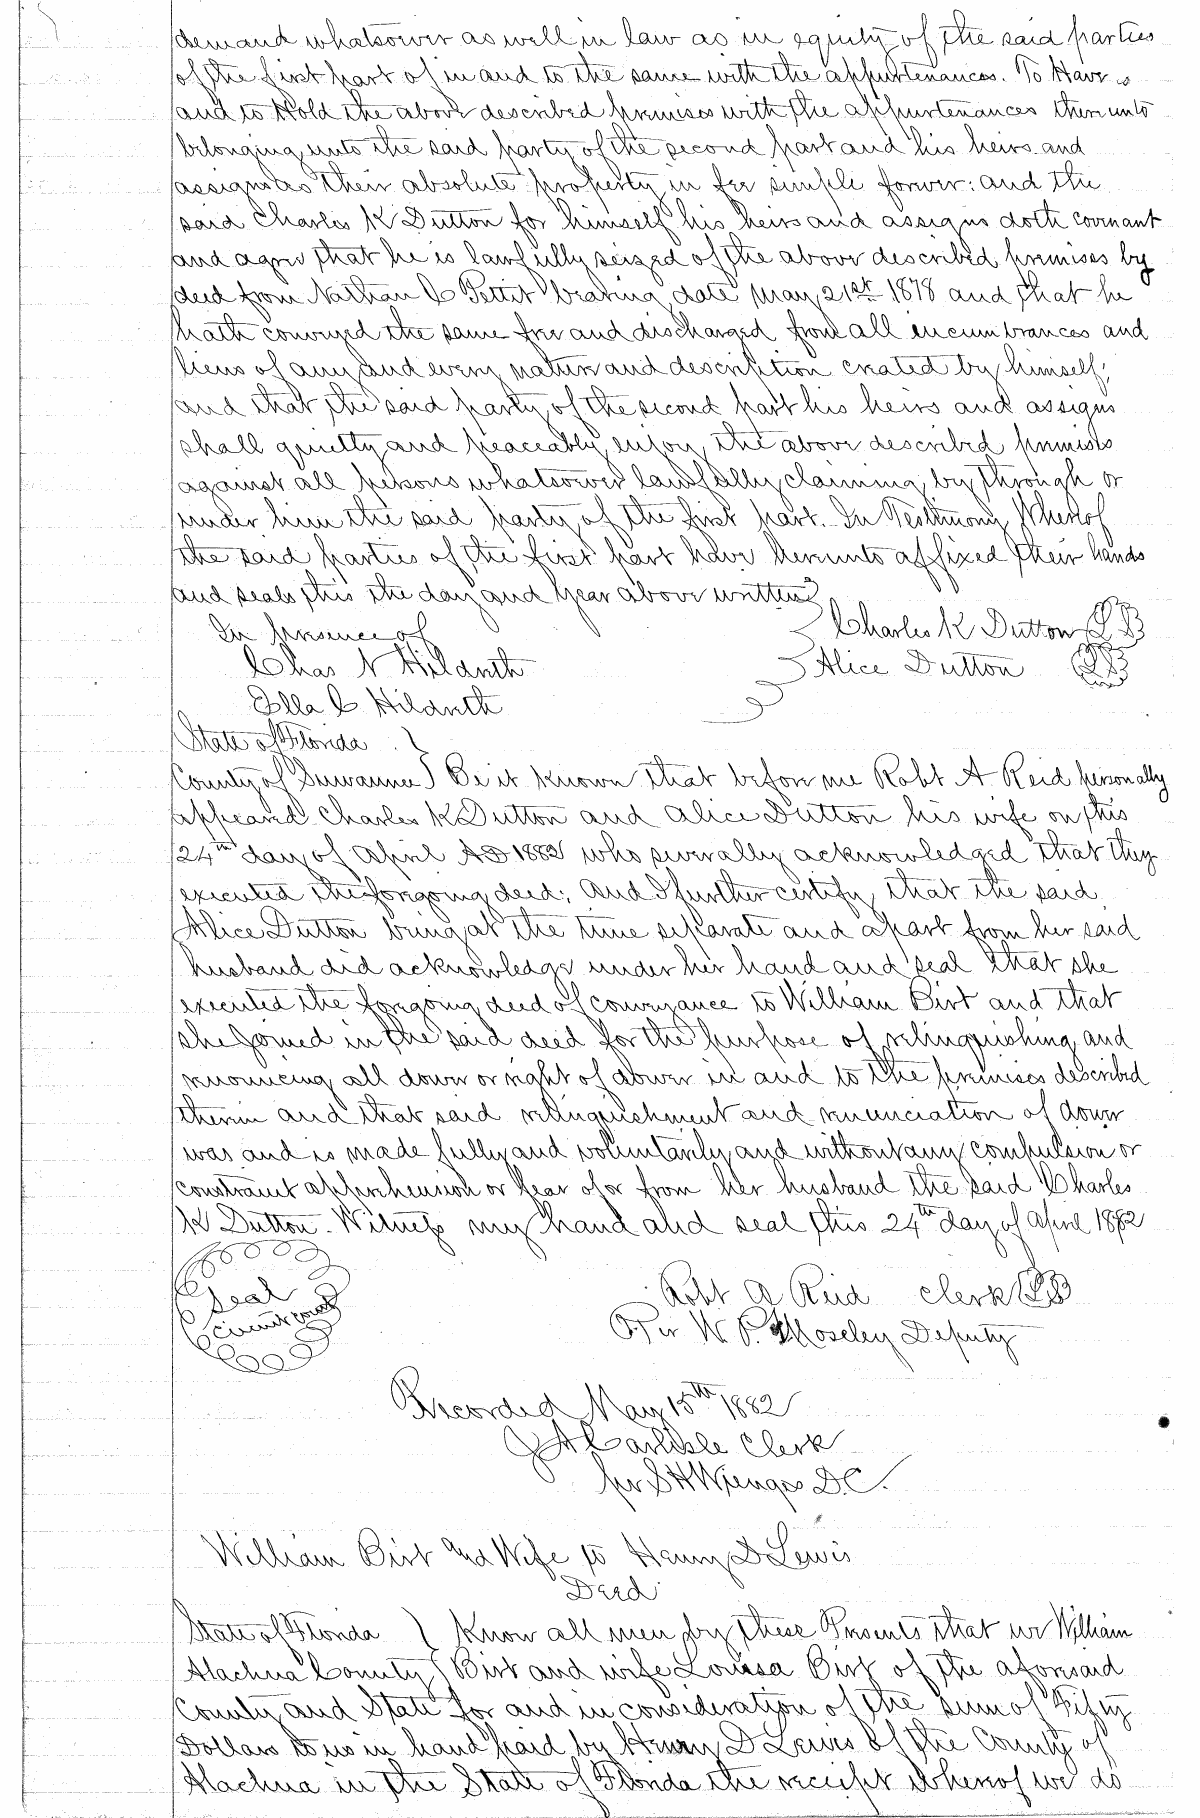 demand whatsoever as well in law as in equity of the said parties
of the first part of in and to the same with the appurtenances. To Have
and to Hold the above described premises with the appurtenances thereunto
belonging unto the said party of the second part and his heirs and
assigns as their absolute property in fee simple forever: and the
said Charles K Dutton for himself his heirs and assigns doth covenant
and agree that he is lawfully seized of the above described premises by
deed from Nathan C Pettit bearing date May 21st 1878 and that he
hath conveyed the same free and discharged from all incumbrances and
liens of any and every nature and description created by himself;
and that the said party of the second part his heirs and assigns
shall quietly and peaceably enjoy the above described premises
against all persons whatsoever lawfully claiming by through or
under him the said party of the first part. In Testimony Whereof
the said parties of the first part have hereunto affixed their hands
and seals this the day and year above written
In presence of Charles K Dutton LS
Chas N Hildreth Alice Dutton LS
Ella C Hildreth
State of Florida }
County of Suwannee } Be it known that before me Robt A Reid personally
appeared Charles K Dutton and Alice Dutton his wife on this
24th day of April AD 1882 who severally acknowledged that they
executed the forgoing deed; And I further certify that the said
Alice Dutton being at the time separate and apart from her said
husband did acknowledge under her hand and seal that she
executed the forgoing deed of conveyance to William Birt and that
she joined in the said deed for the purpose of relinquishing and
renouncing all dower or right of dower in and to the premises described
therein and that said relinquishment and renunciation of dower
was and is made fully and voluntarily and without any compulsion or
constraint apprehension or fear of or from her husband the said Charles
K Dutton. Witness my hand and seal this 24th day of April 1882
Seal
circuit court
Robt A Reid Clerk LS
Per W P. Moseley Deputy
Recorded May 15th 1882
J A Carlisle Clerk
per S H Wienges D.C.
William Birt and Wife to Henry D Lewis
Deed
State of Florida } Know all men by these Presents that we William
Alachua County } Birt and wife Louisa Birt of the aforesaid
County and State for and in consideration of the sum of Fifty
Dollars to us in hand paid by Henry D Lewis of the County of
Alachua in the State of Florida the receipt whereof we do